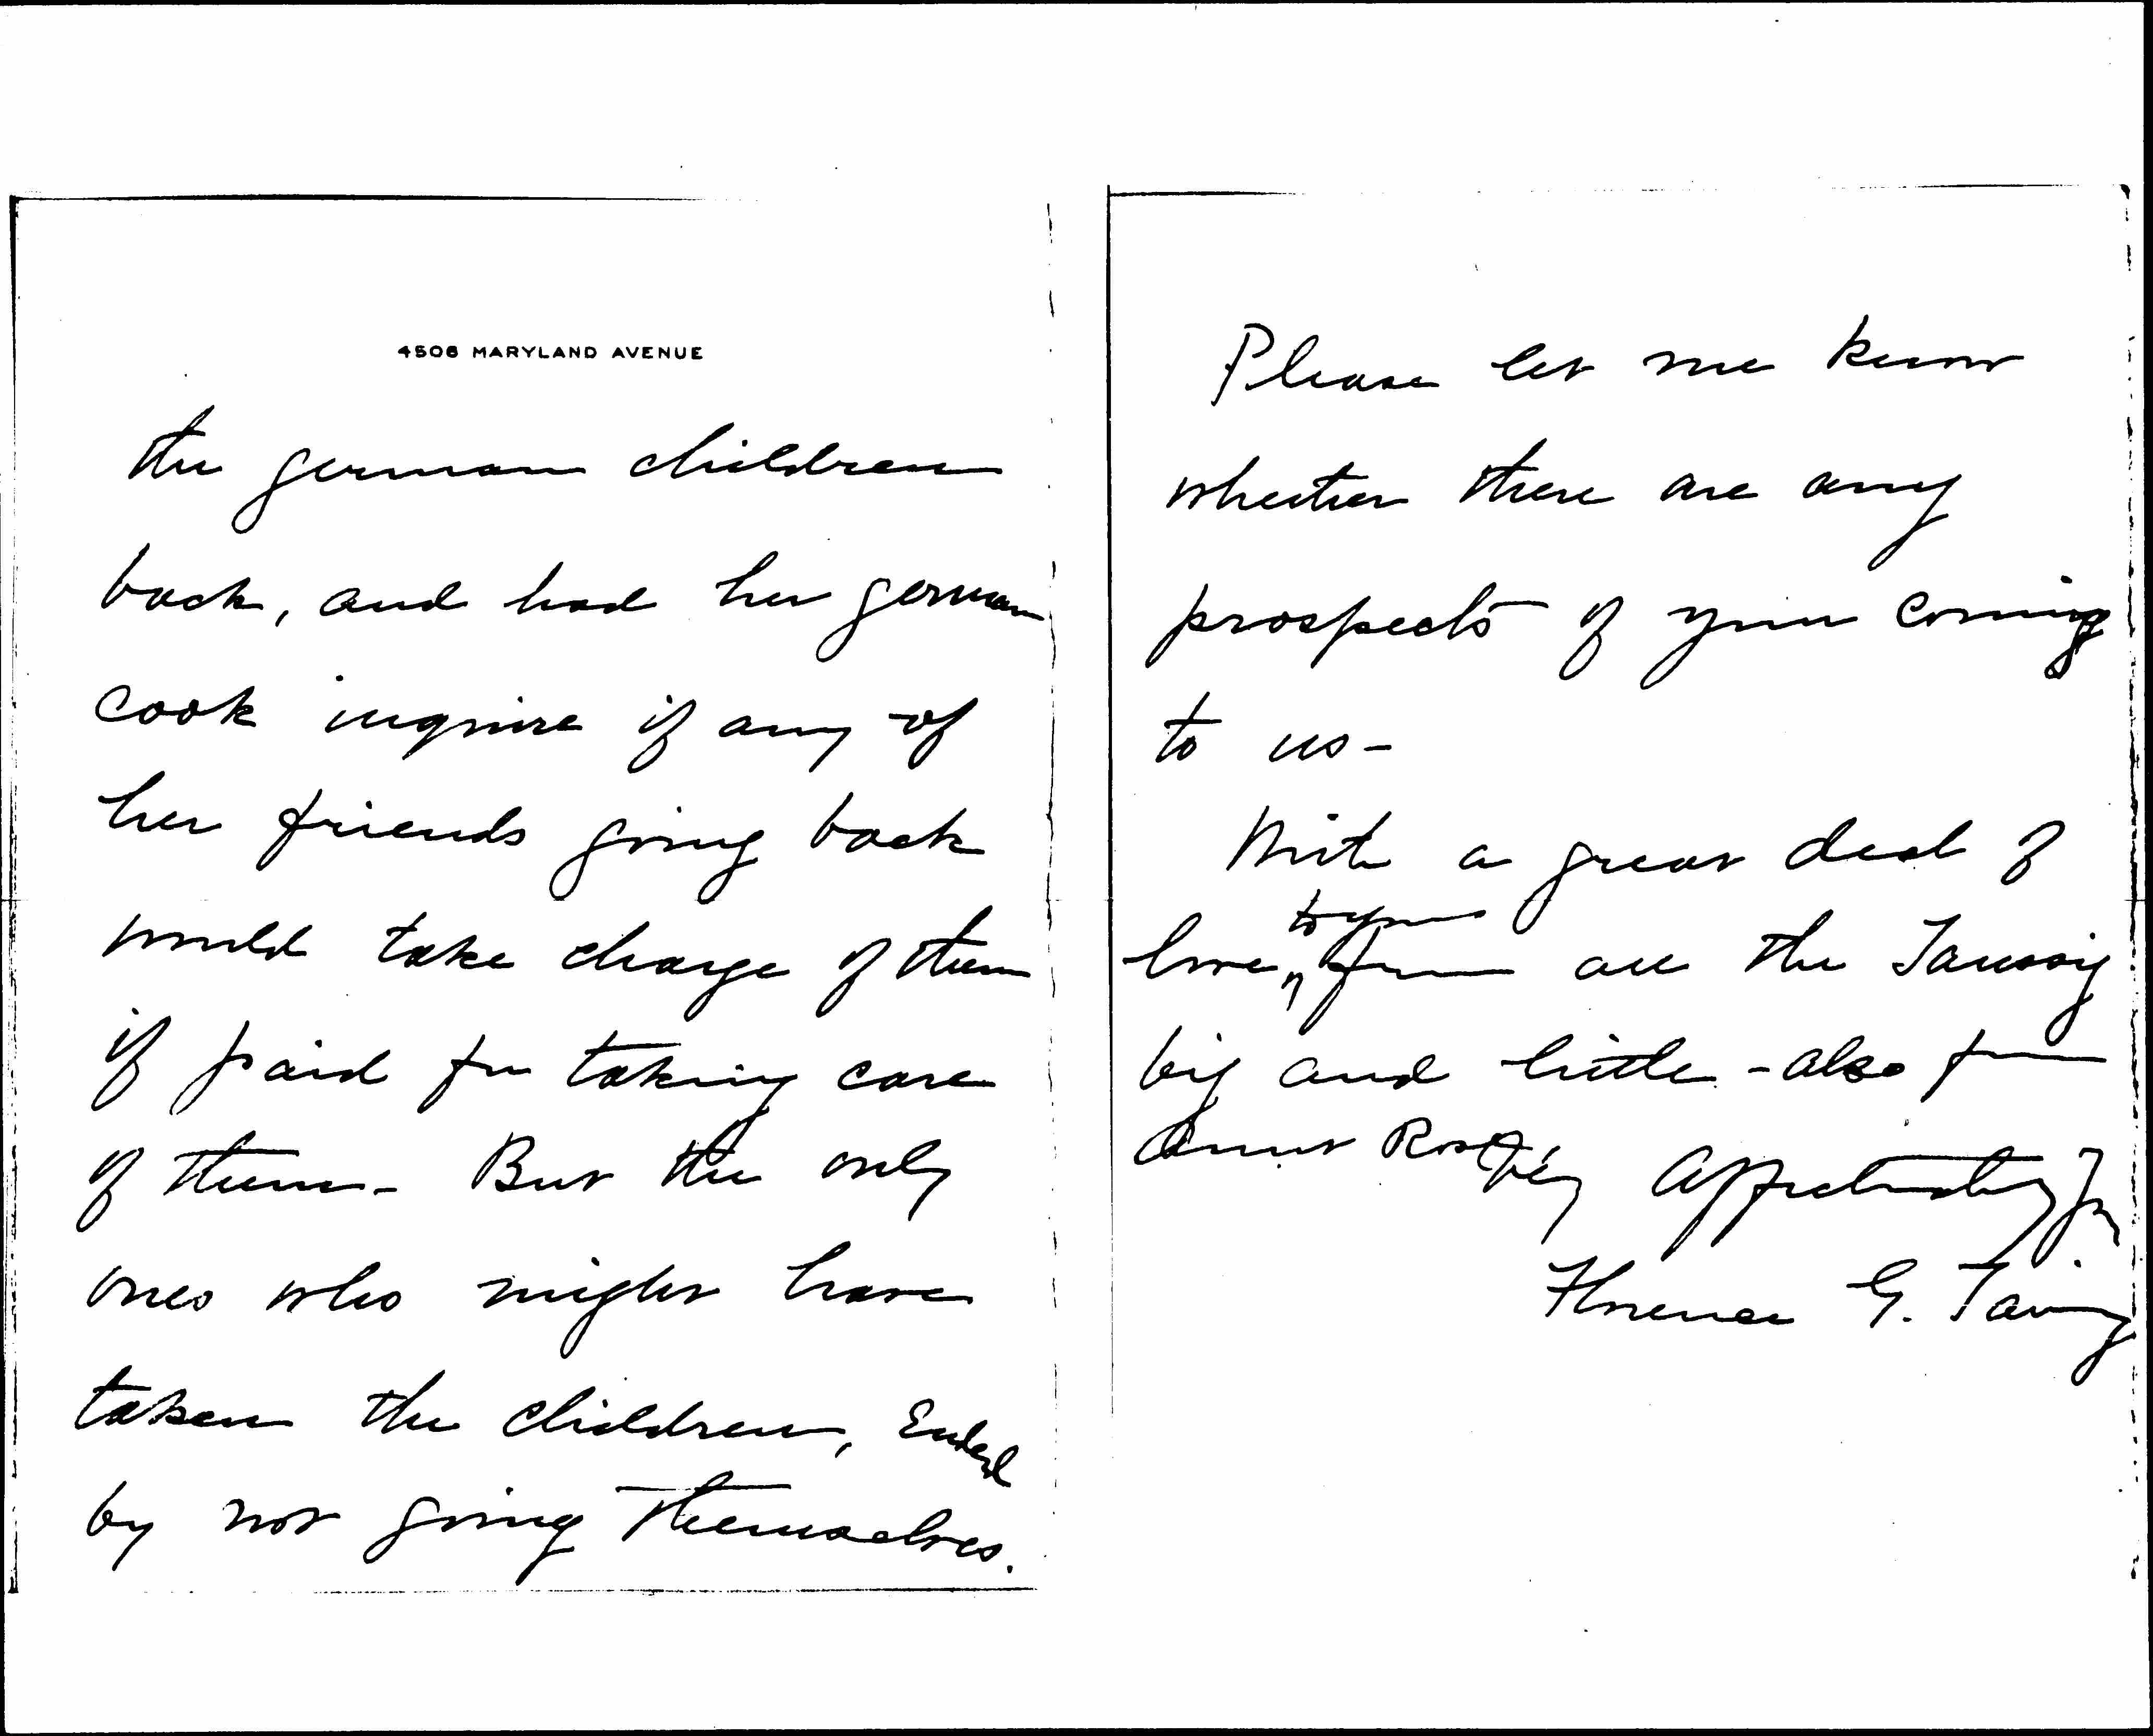 4506 MARYLAND AVENUE
the german children
back, and had her german
cook inquire if any of
her friends going back
would take charge of them
if paid for taking care
of them - But the only
ones who might have
taken the children, ended
by not going themselves.
Please let me know
whether there are any
prospects of your coming
to us -
With a great deal of
to you
love, from all the Taussig
big and little - also from
Aunt Rose
Very affectionately Yrs
Florence G. Taussig